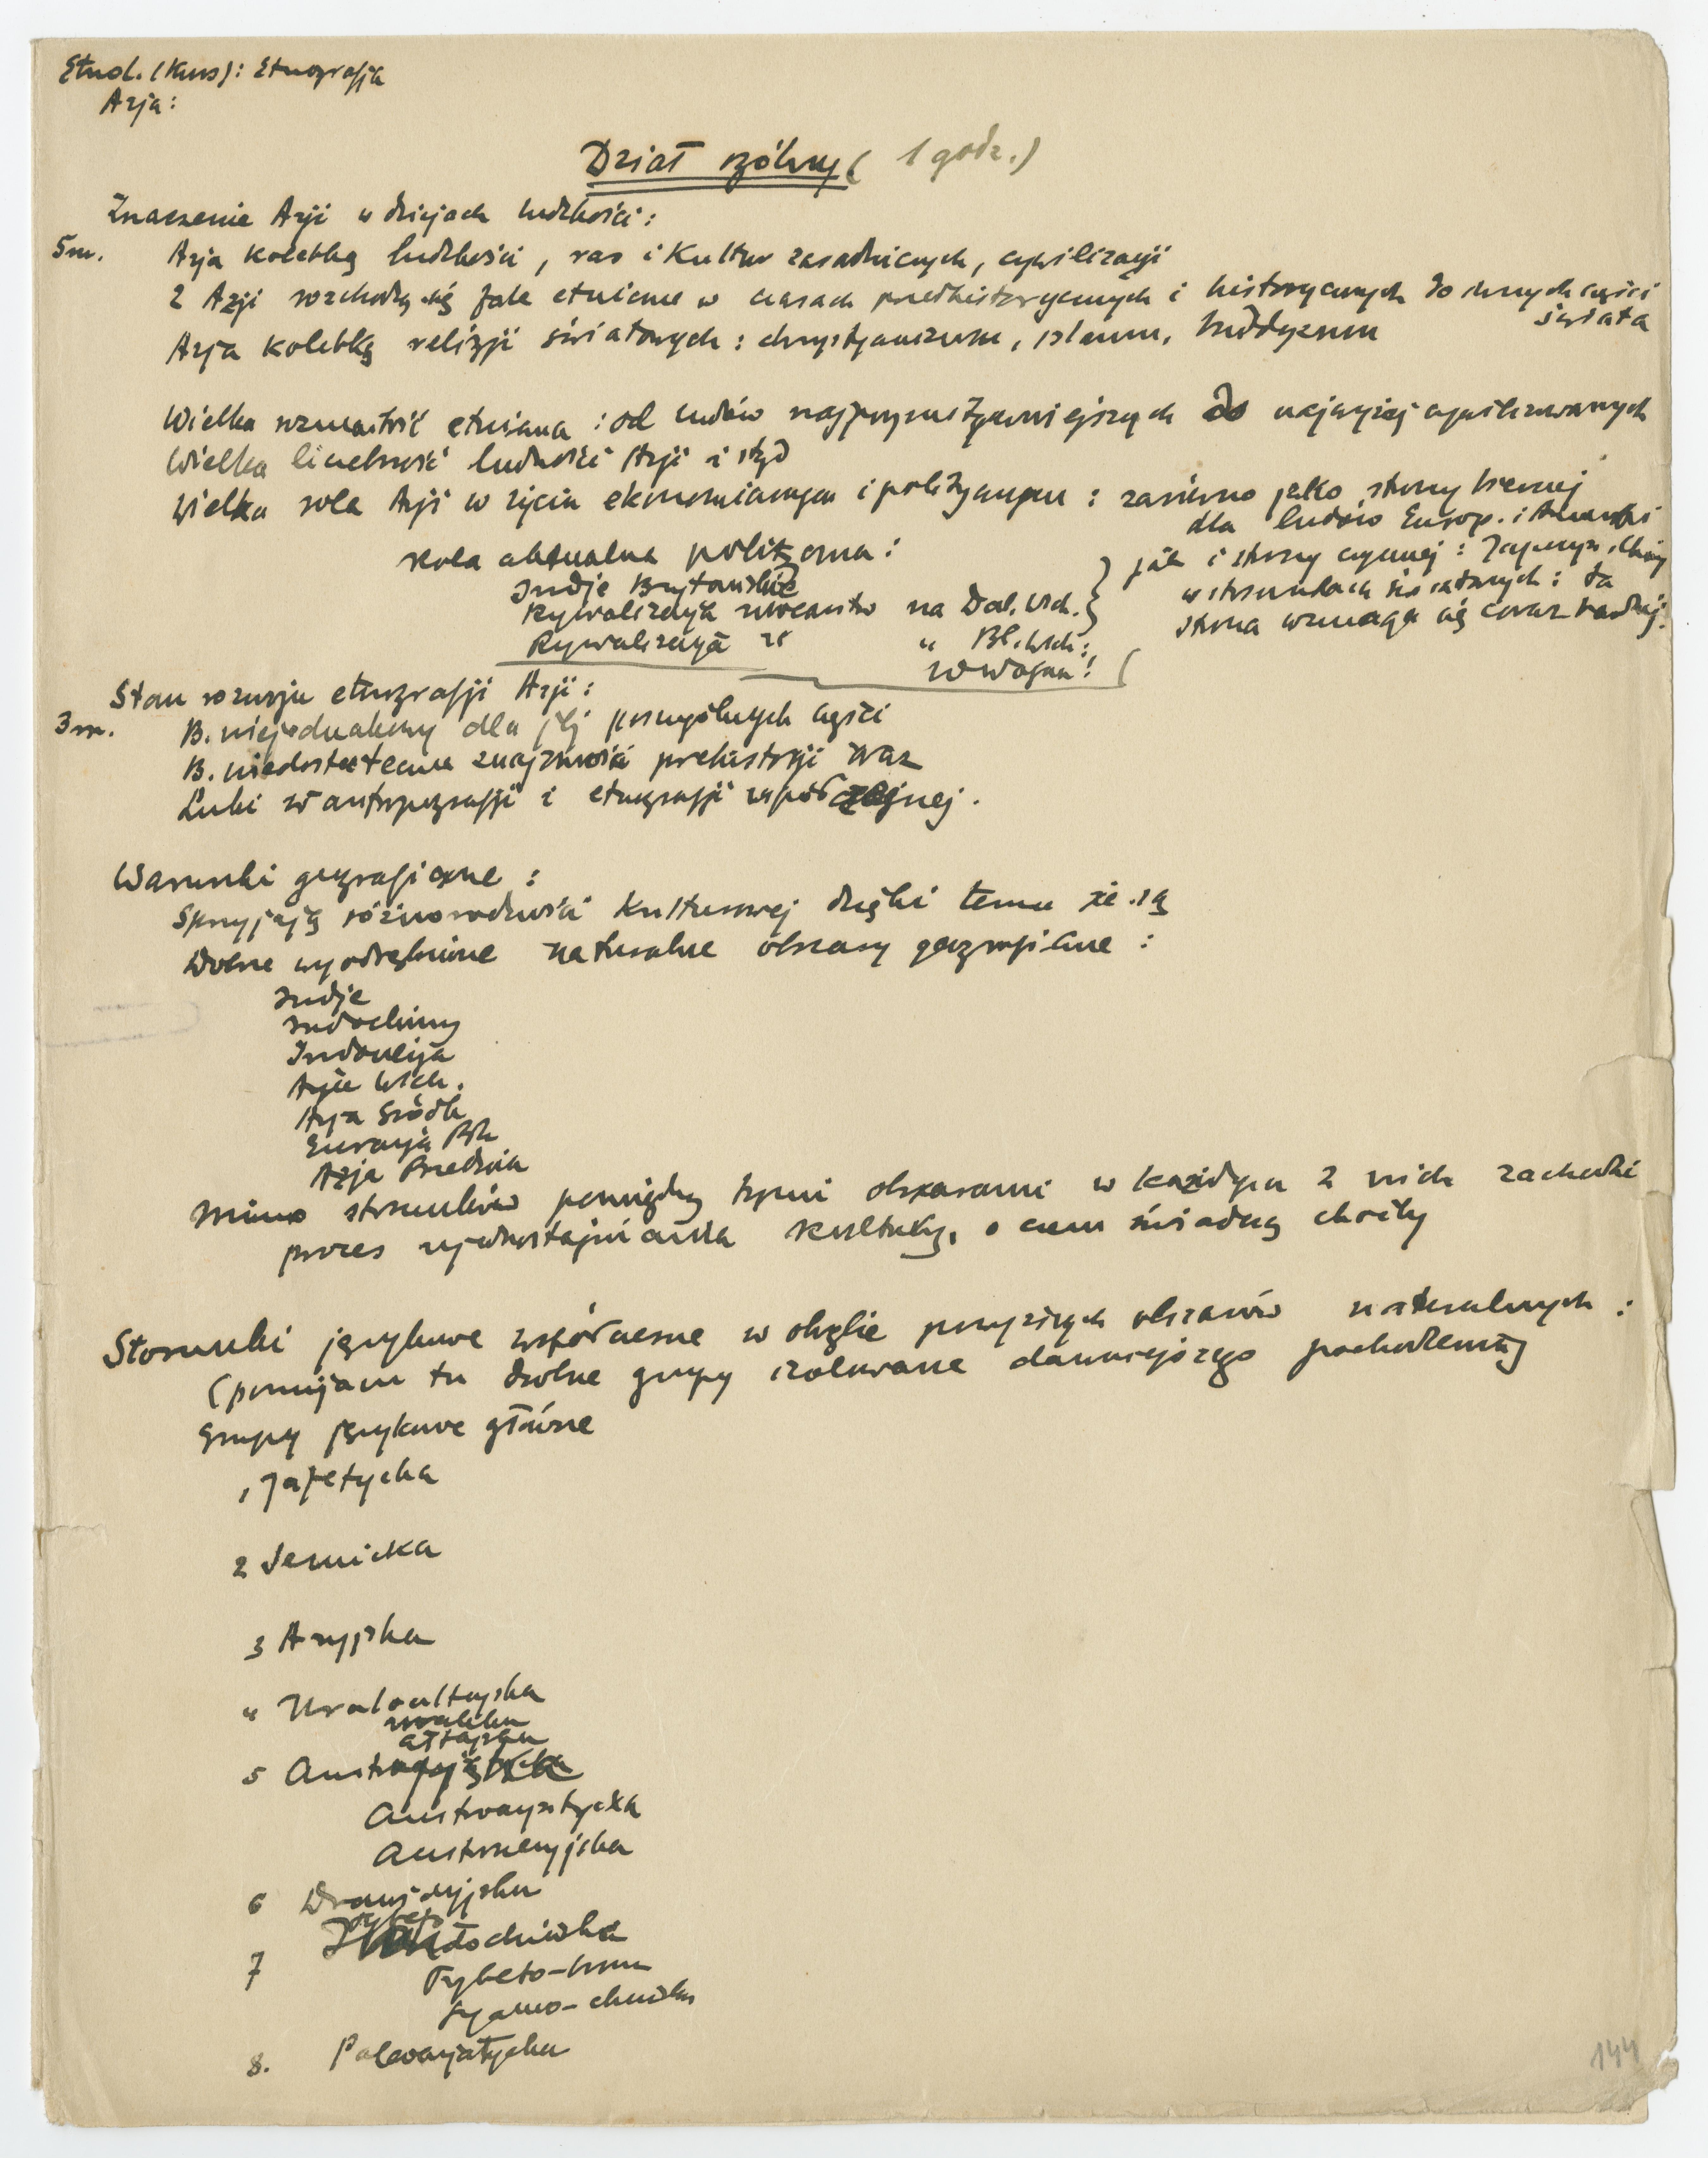 Etnol. (Kurs): Etnografja
Azja:
Dział ogólny ( 1 godz. )
Znaczenie Azji w dziejach ludzkości:
5 m. Azja kolebką ludzkości, ras i kultur zasadniczych, cywilizacji
Z Azji rozchodzą się fale etniczne w czasach przedhistorycznych i historycznych do innych części
świata
Azja kolebką religji światowych: chrystjanizm, islam, buddyzm
Wielka rozmaitość etniczna: od ludów najprymitywniejszych do najwyżej cywilizowanych
Wielka liczebność ludności Azji i stąd
Wielka rola Azji w życiu ekonomicznym i politycznym: zarówno jako strony biernej
dla ludów Europ. i Ameryki
jak i strony czynnej: Japonja, Chiny
w stosunkach światowych: ta
strona wzmaga się coraz bardziej.
Rola aktualna polityczna:
Indje Brytańskie
Rywalizacja mocarstw na Dal. Wsch.
Rywalizacja " " Bl. Wsch.
Stan rozwoju etnografji Azji:
3 m. B. niejednakowy dla jej poszczególnych części
B. niedostateczna znajomość prehistorji oraz
Luki w antropografji i etnografji współczesnej.
Warunki geograficzne:
Sprzyjają różnorodności kulturowej dzięki temu że są
Dobrze wyodrębnione naturalne obszary geograficzne:
Indje
Indochiny
Indonezja
Azja Wsch.
Azja Środk
Eurazja Płn
Azja Przednia
Mimo stosunków pomiędzy tymi obszarami w każdym z nich zachodzi
proces ujednostajniania kultury, o czem świadczą choćby
Stosunki językowe współczesne w obrębie powyższych obszarów naturalnych:
(pomijam tu drobne grupy izolowane dawniejszego pochodzenia)
Grupy językowe główne
1 Jafetycka
2 Semicka
3 Aryjska
4 Uraloałtajska
uralska
ałtajska
5 Austryjska
Austroazjatycka
Austronezyjska
6 Drawidyjska
7 Tybetochińska
Tybeto-birm
Syamo-chińska
8. Paleoazjatycka
144